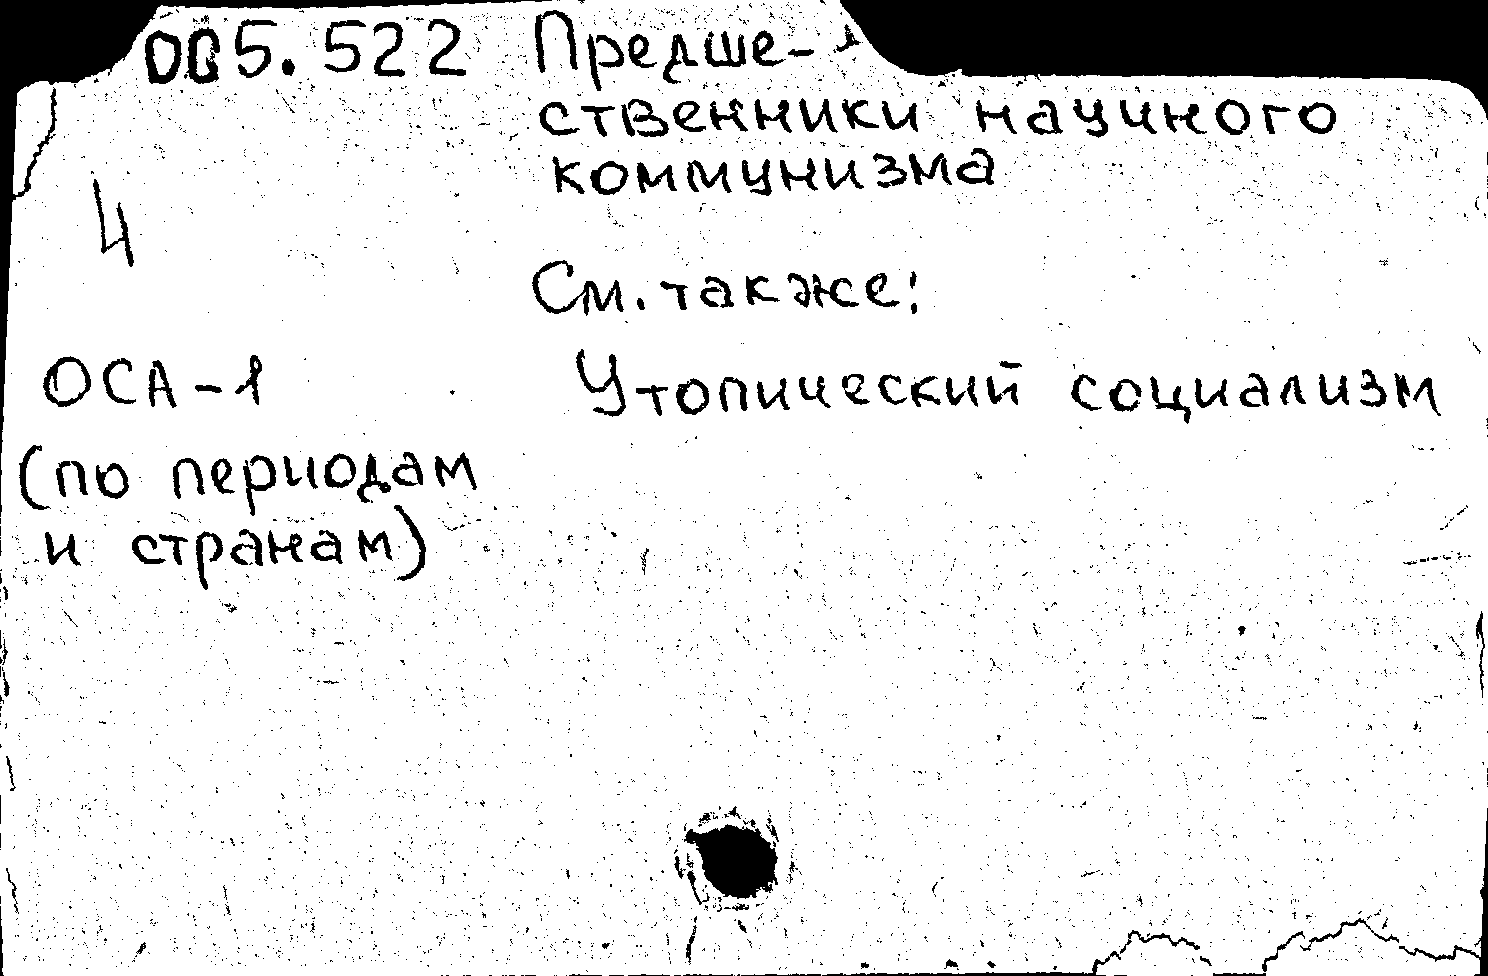 005.522 Предше-
ственники научного
коммунизма
4
См. также:
ОСА-1 Утопический социализм
(по периодам
и странам)